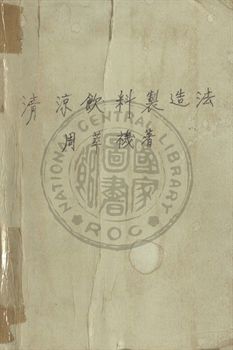 清涼飲料製造法
周萃機著
NATIONAL CENTRAL LIBRARY
ROC
國家圖書館